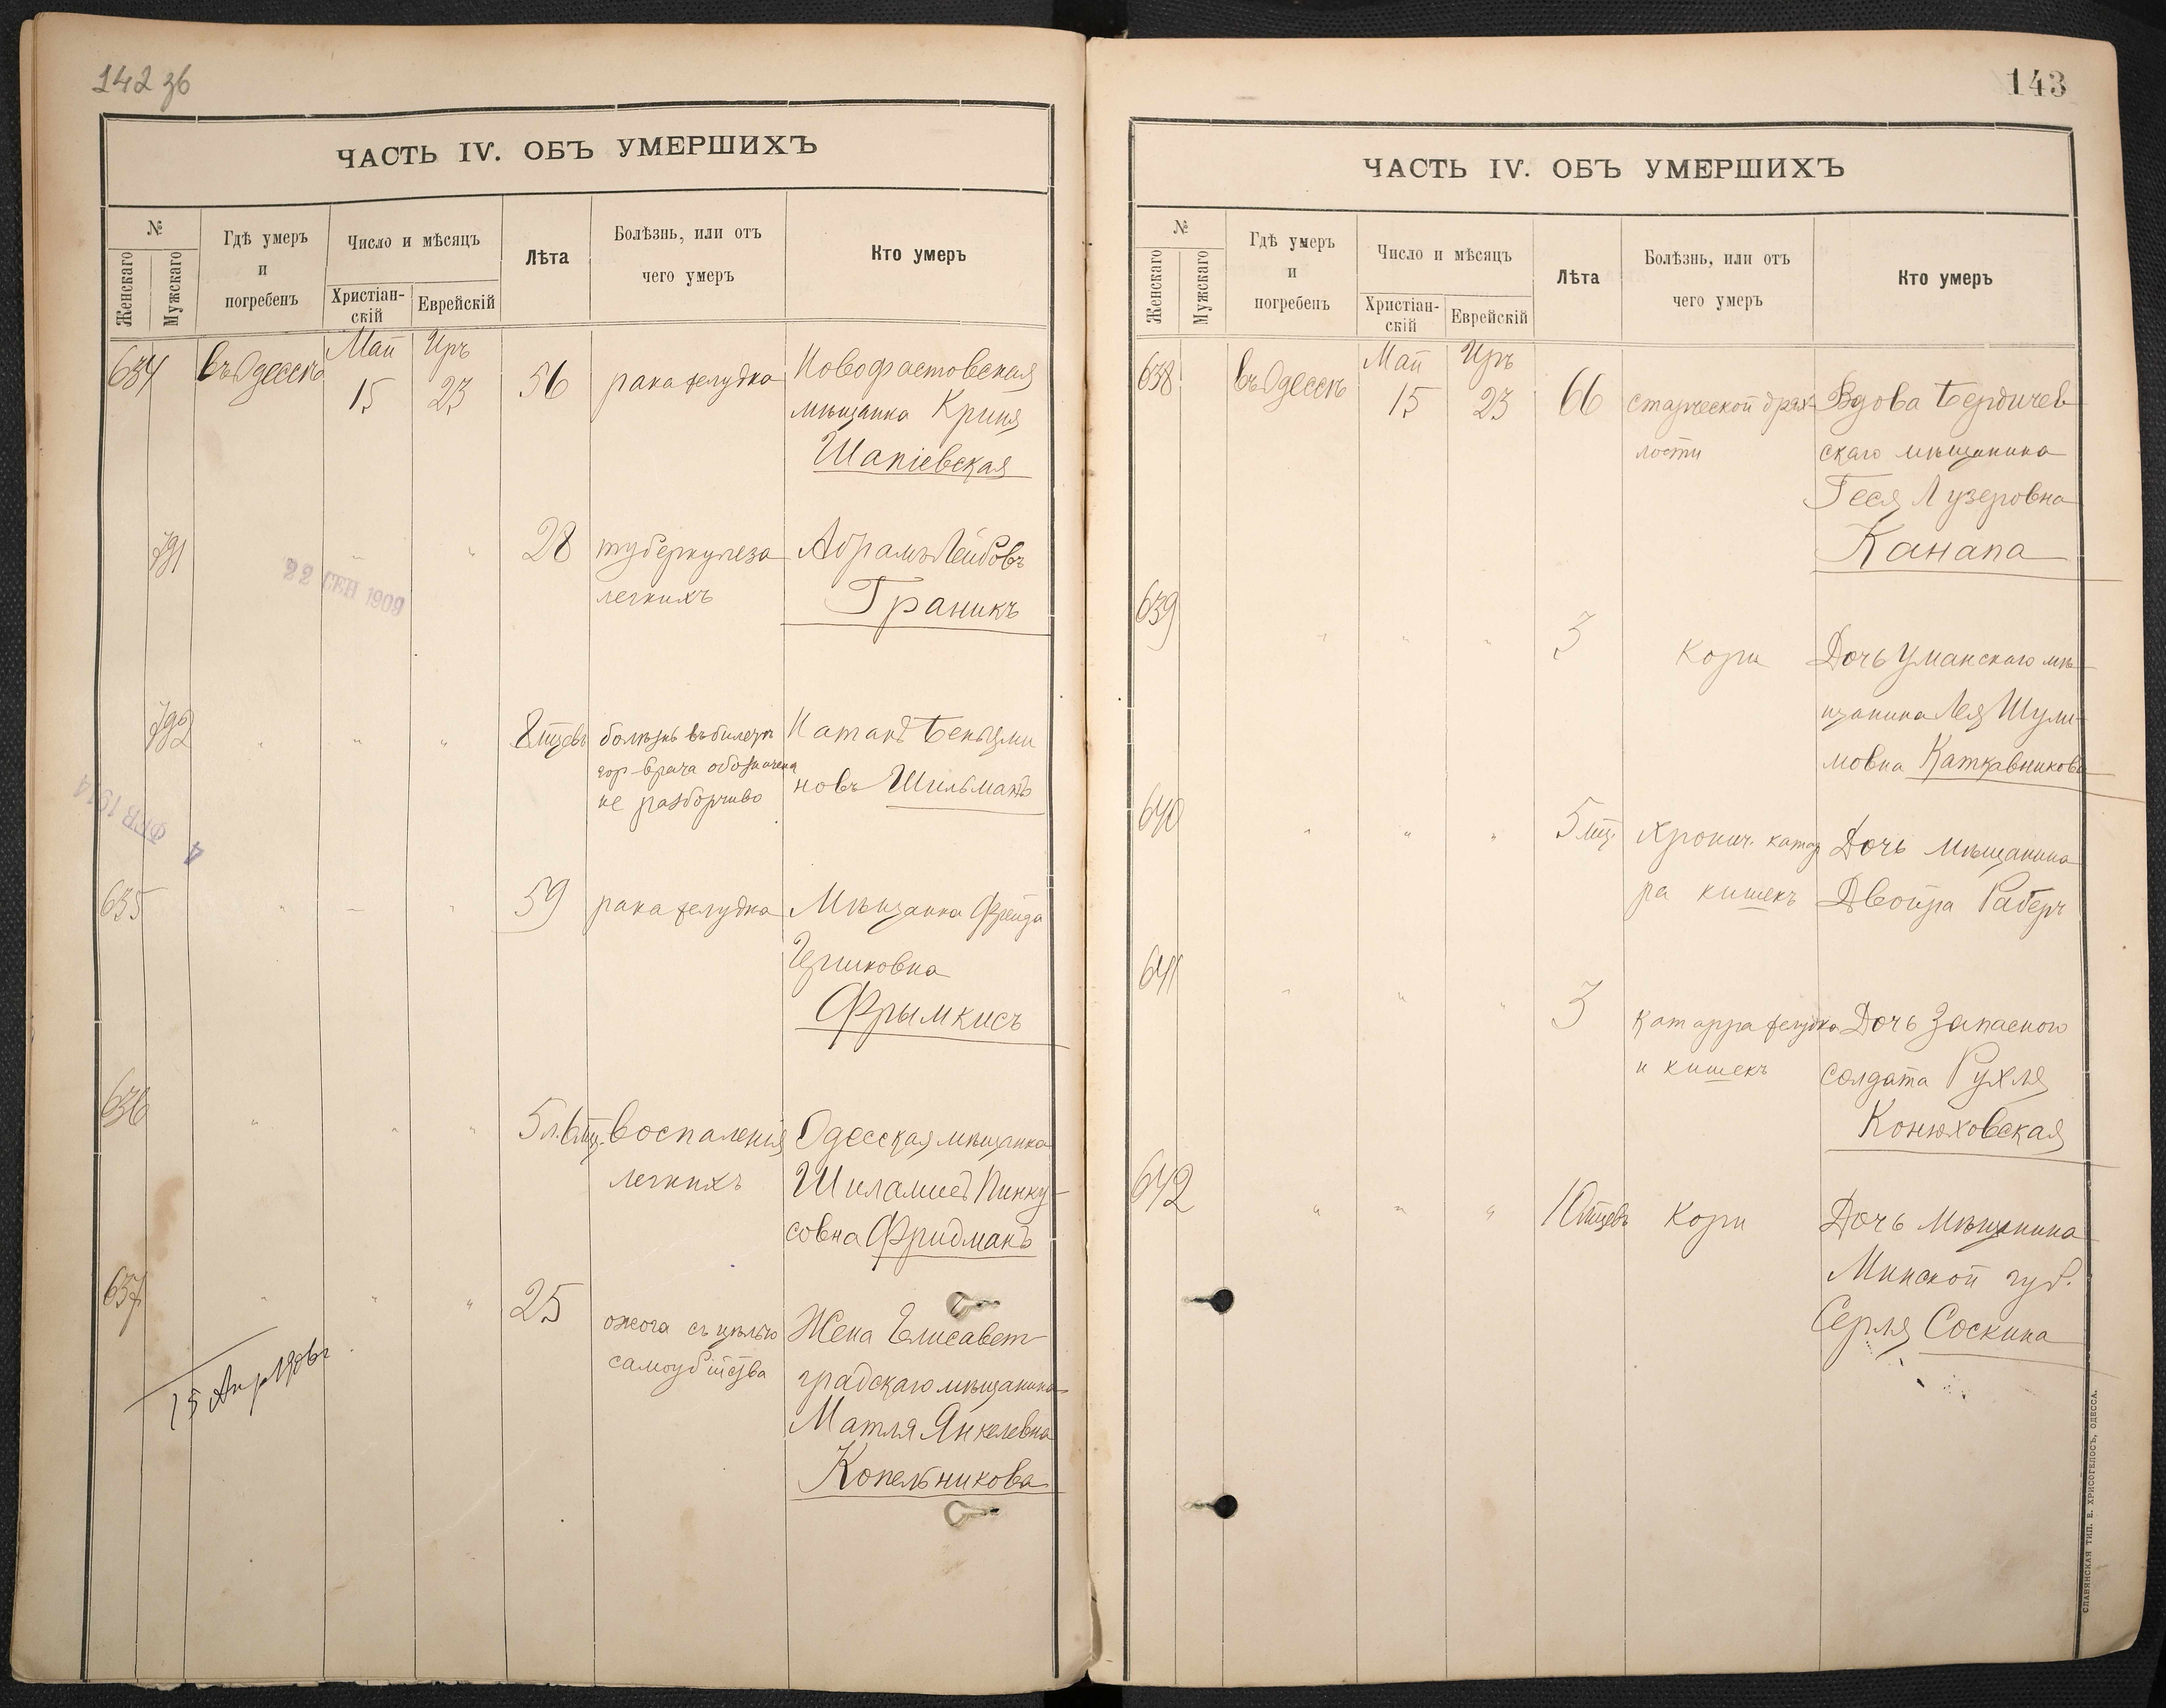 142 зб
ЧАСТЬ IV. ОБЪ УМЕРШИХЪ
№
Женскаго
Мужскаго
Гдѣ умеръ
и
погребенъ
Число и мѣсяцъ
Христіан-
скій
Еврейскій
Лѣта
Болѣзнь, или отъ
чего умеръ
Кто умеръ
634 въ Одессѣ Май 15 Иръ 23 56 рака желудка Новофастовская
мѣщанка Криня
Шапіевская
791 " " 28 туберкулеза Абрамъ Лейбовъ
легкихъ Граникъ
22 СЕН 1909
792 " " " 8 мцевъ болѣзнь въ билетѣ Натанъ Беньями
гор. врача обозначена
не разборчиво новъ Шильманъ
4 ФЕВ 1914
635 " " " 59 рака желудка Мѣщанка Фрейда
Гершковна
Фрымкисъ
636 " " " 5 л. 6 мц. воспаленія Одесская мѣщанка
легкихъ Шиламисъ Пинку-
совна Фридманъ
637 " " " 25 ожога съ цѣлью Жена Елисавет-
самоубійства градскаго мѣщанина
Матля Янкелевна
Копельникова
15 Апр 1906 г.
143
ЧАСТЬ IV. ОБЪ УМЕРШИХЪ
№
Женскаго
Мужскаго
Гдѣ умеръ
и
погребенъ
Число и мѣсяцъ
Христіан-
скій
Еврейскій
Лѣта
Болѣзнь, или отъ
чего умеръ
Кто умеръ
638 въ Одессѣ Май 15 Иръ 23 66 старческой дрях- Вдова Бердичев
лости скаго мѣщанина
Геся Лузеровна
Канапа
639 " " " 3 Кори Дочь Уманскаго мѣ-
щанина Лея Шули-
мовна Каткавникова
640 " " " 5 мц. хронич. катар Дочь мѣщанина
ра кишекъ Двойра Раберъ
641 " " " 3 катарра желудка Дочь запасного
и кишекъ солдата Рухля
Конюховская
642 " " " 10 мцевъ Кори Дочь мѣщанина
Минской губ.
Серля Соскина
СЛАВЯНСКАЯ ТИП. Е. ХРИСОГЕЛОСЪ, ОДЕССА.